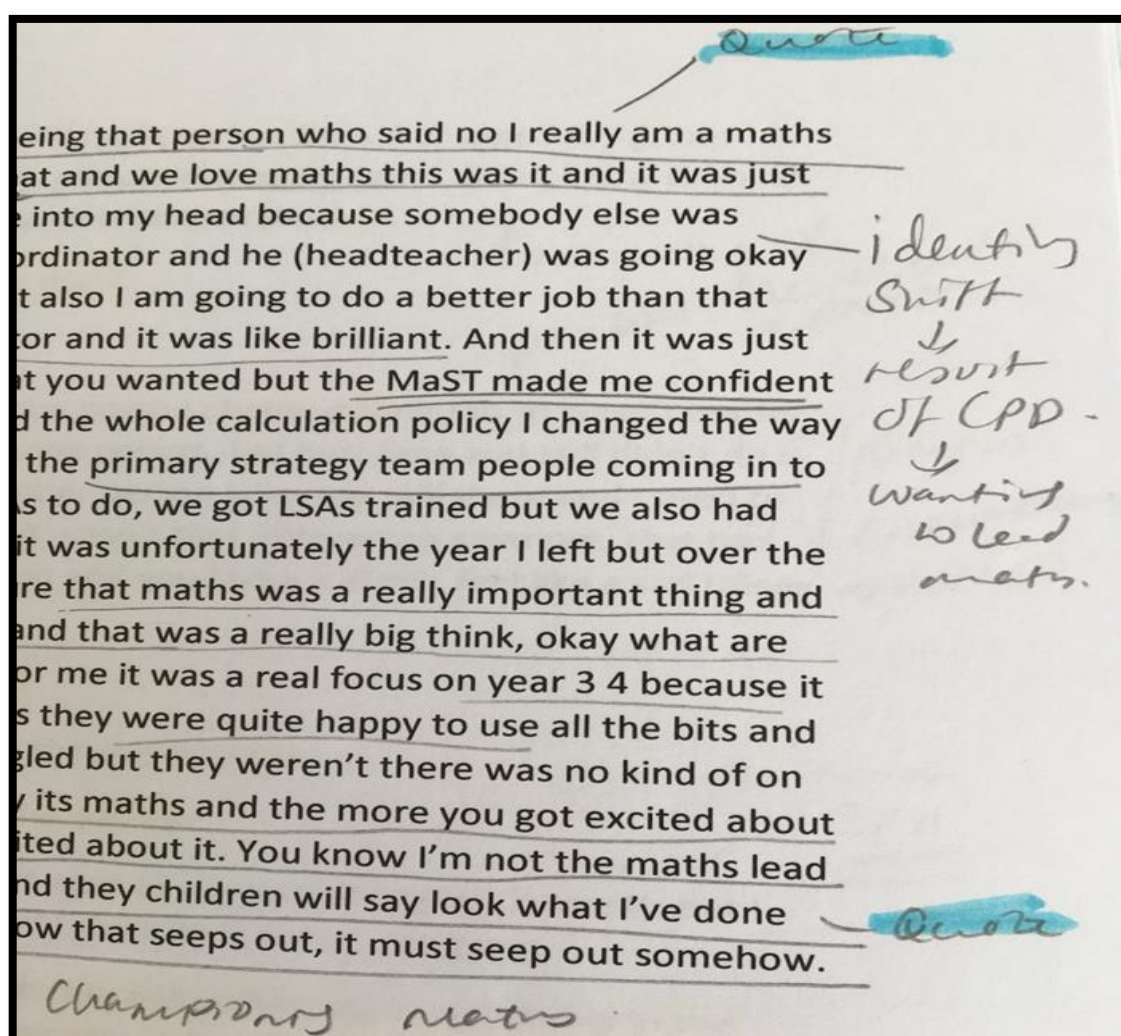 Quote
eing that person who said no I really am a maths
at and we love maths this was it and it was just
e into my head because somebody else was
ordinator and he (headteacher) was going okay
t also I am going to do a better job than that
or and it was like brilliant. And then it was just
at you wanted but the MaST made me confident
d the whole calculation policy I changed the way
the primary strategy team people coming in to
As to do, we got LSAs trained but we also had
it was unfortunately the year I left but over the
re that maths was a really important thing and
and that was a really big think, okay what are
or me it was a real focus on year 3 4 because it
s they were quite happy to use all the bits and
gled but they weren't there was no kind of on
y its maths and the more you got excited about
ited about it. You know I'm not the maths lead
nd they children will say look what I've done
ow that seeps out, it must seep out somehow.
identity
shift
↓
result
of CPD -
↓
wanting
to lead
maths.
Quote
Championing maths